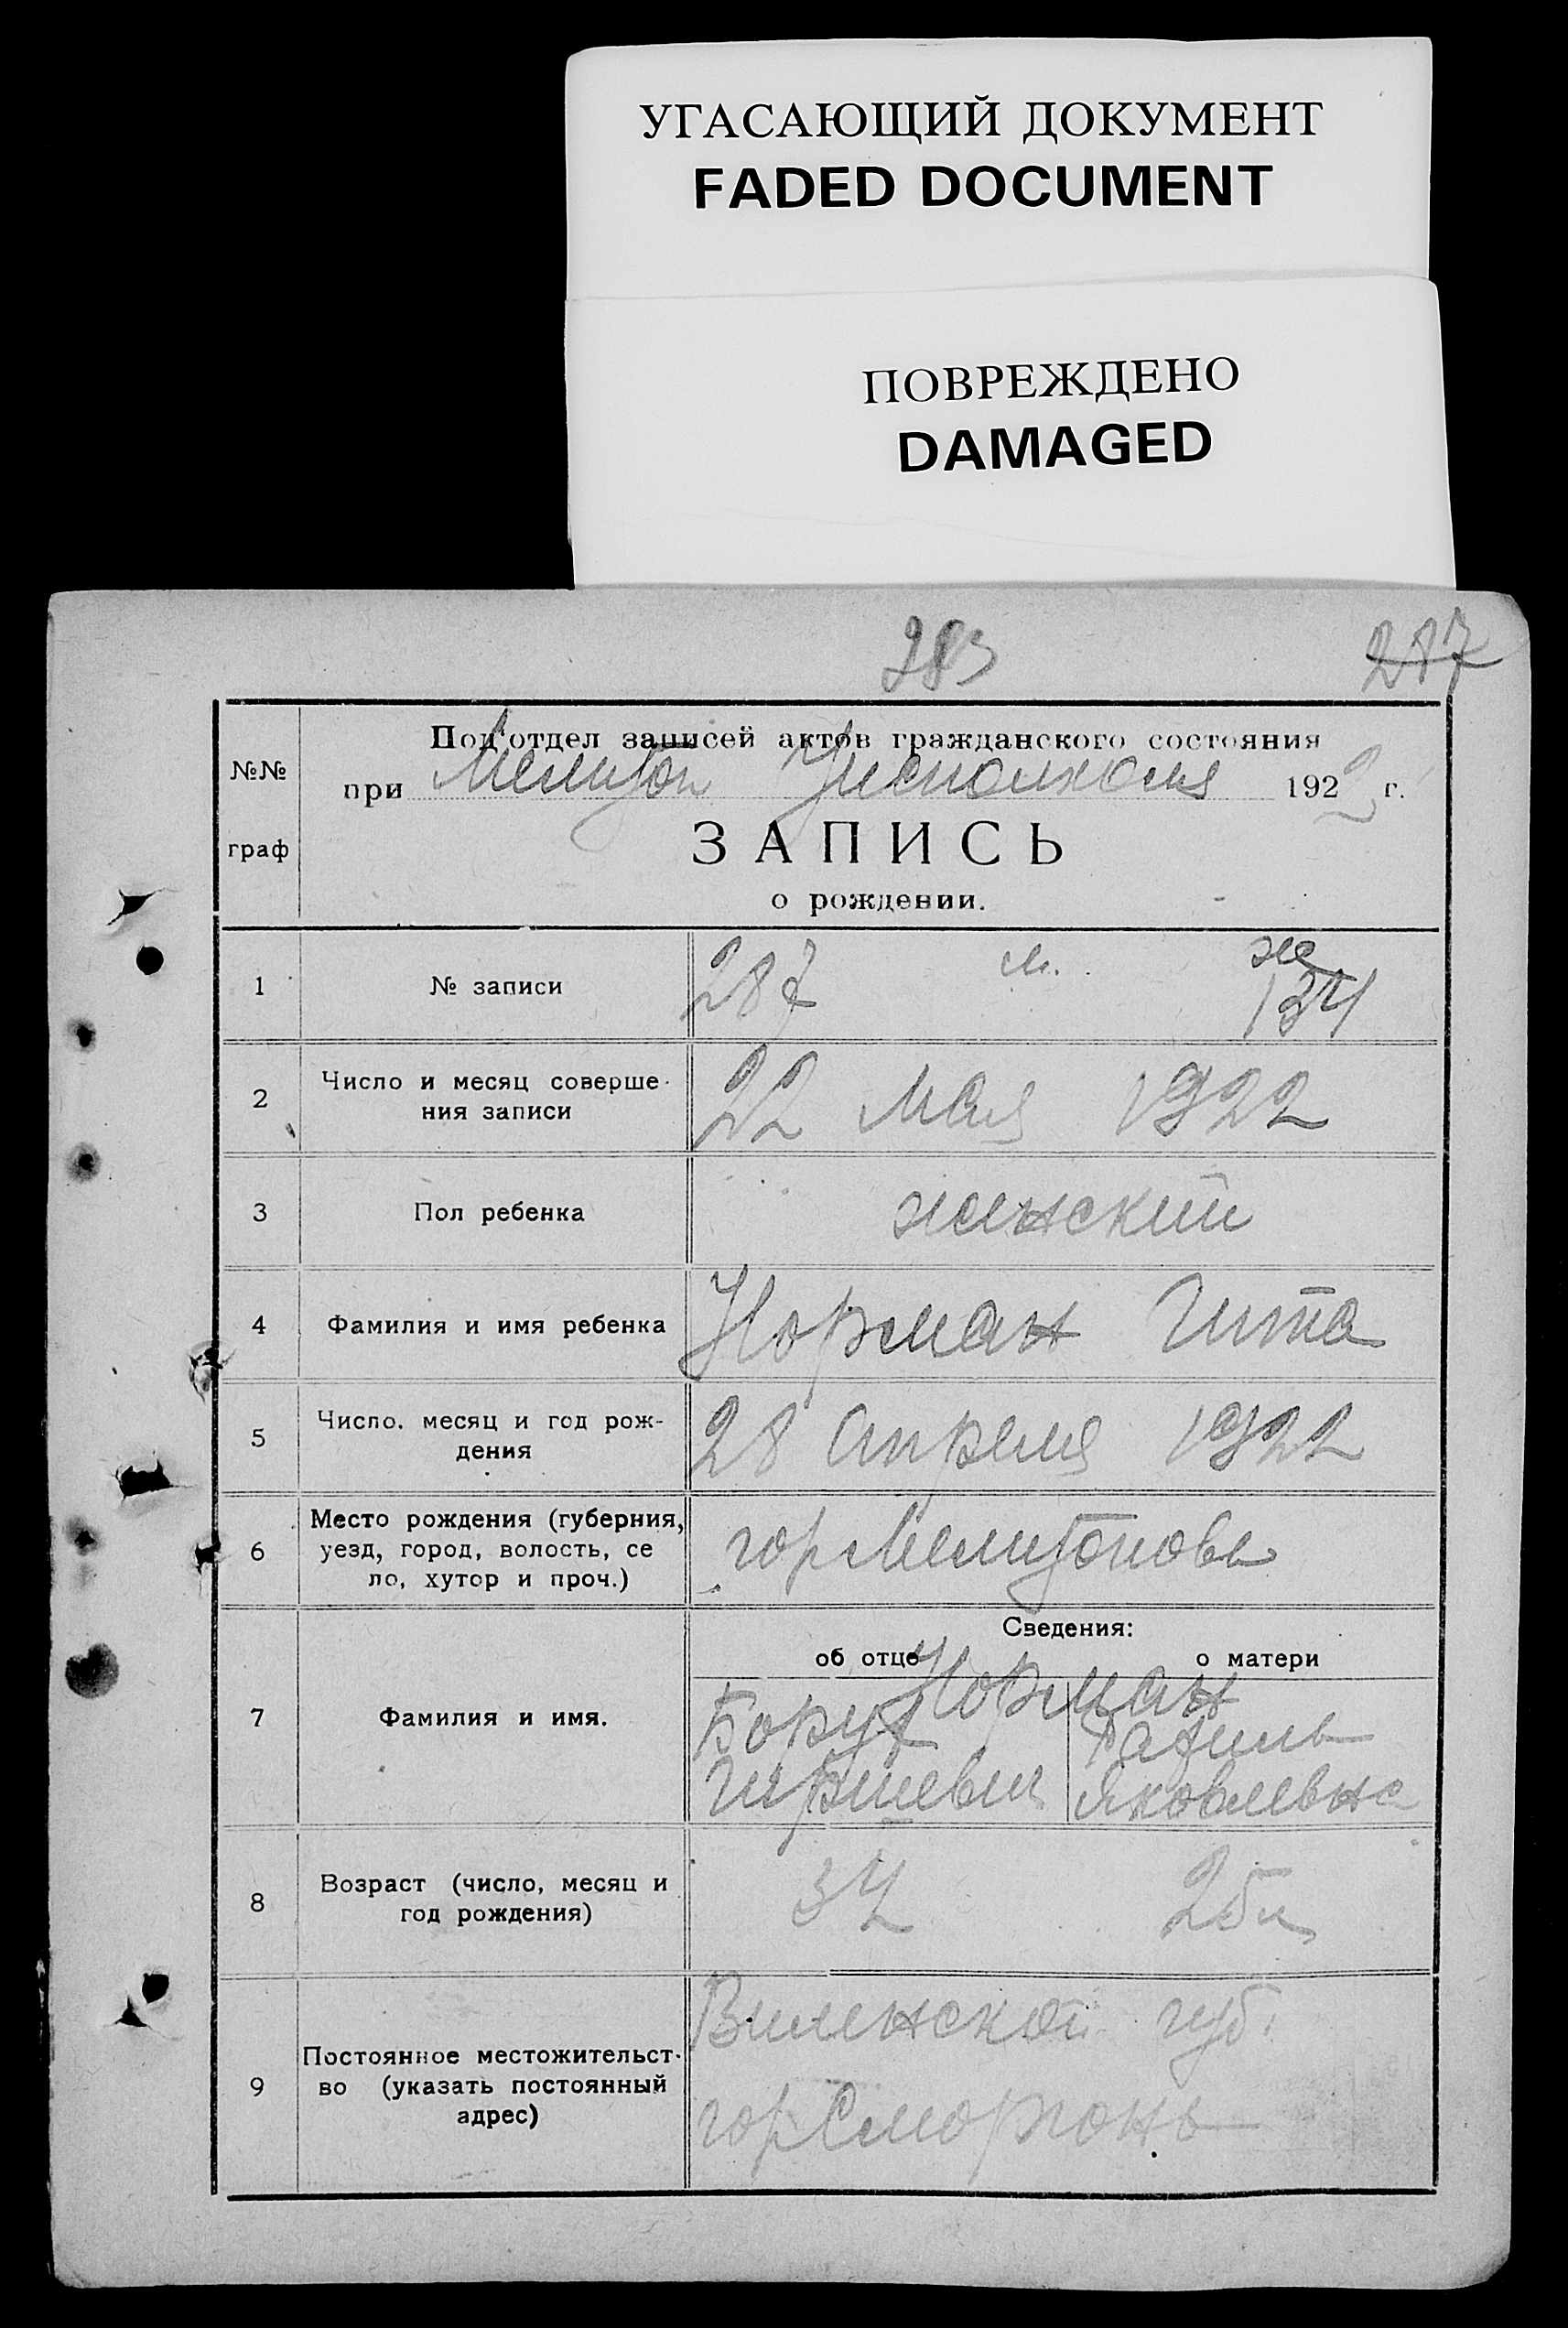 УГАСАЮЩИЙ ДОКУМЕНТ
FADED DOCUMENT
ПОВРЕЖДЕНО
DAMAGED
283 287
№№ граф
Под'отдел записей актов гражданского состояния
при Мелитоп Уисполкоме 1922 г.
ЗАПИСЬ
о рождении.
1 № записи 287 м. ж 134
2 Число и месяц соверше-
ния записи
22 мая 1922
3 Пол ребенка женский
4 Фамилия и имя ребенка Норман Гита
5 Число, месяц и год рож-
дения
28 апреля 1922
6 Место рождения (губерния,
уезд, город, волость, се
ло, хутор и проч.)
гор Мелитополь
Сведения:
об отце о матери
7 Фамилия и имя.
Норман
Борух Рахиль
Гиршевич Яковлевна
8 Возраст (число, месяц и
год рождения)
34 25 л
9 Постоянное местожительст-
во (указать постоянный
адрес)
Виленской губ.
гор Сморгонь